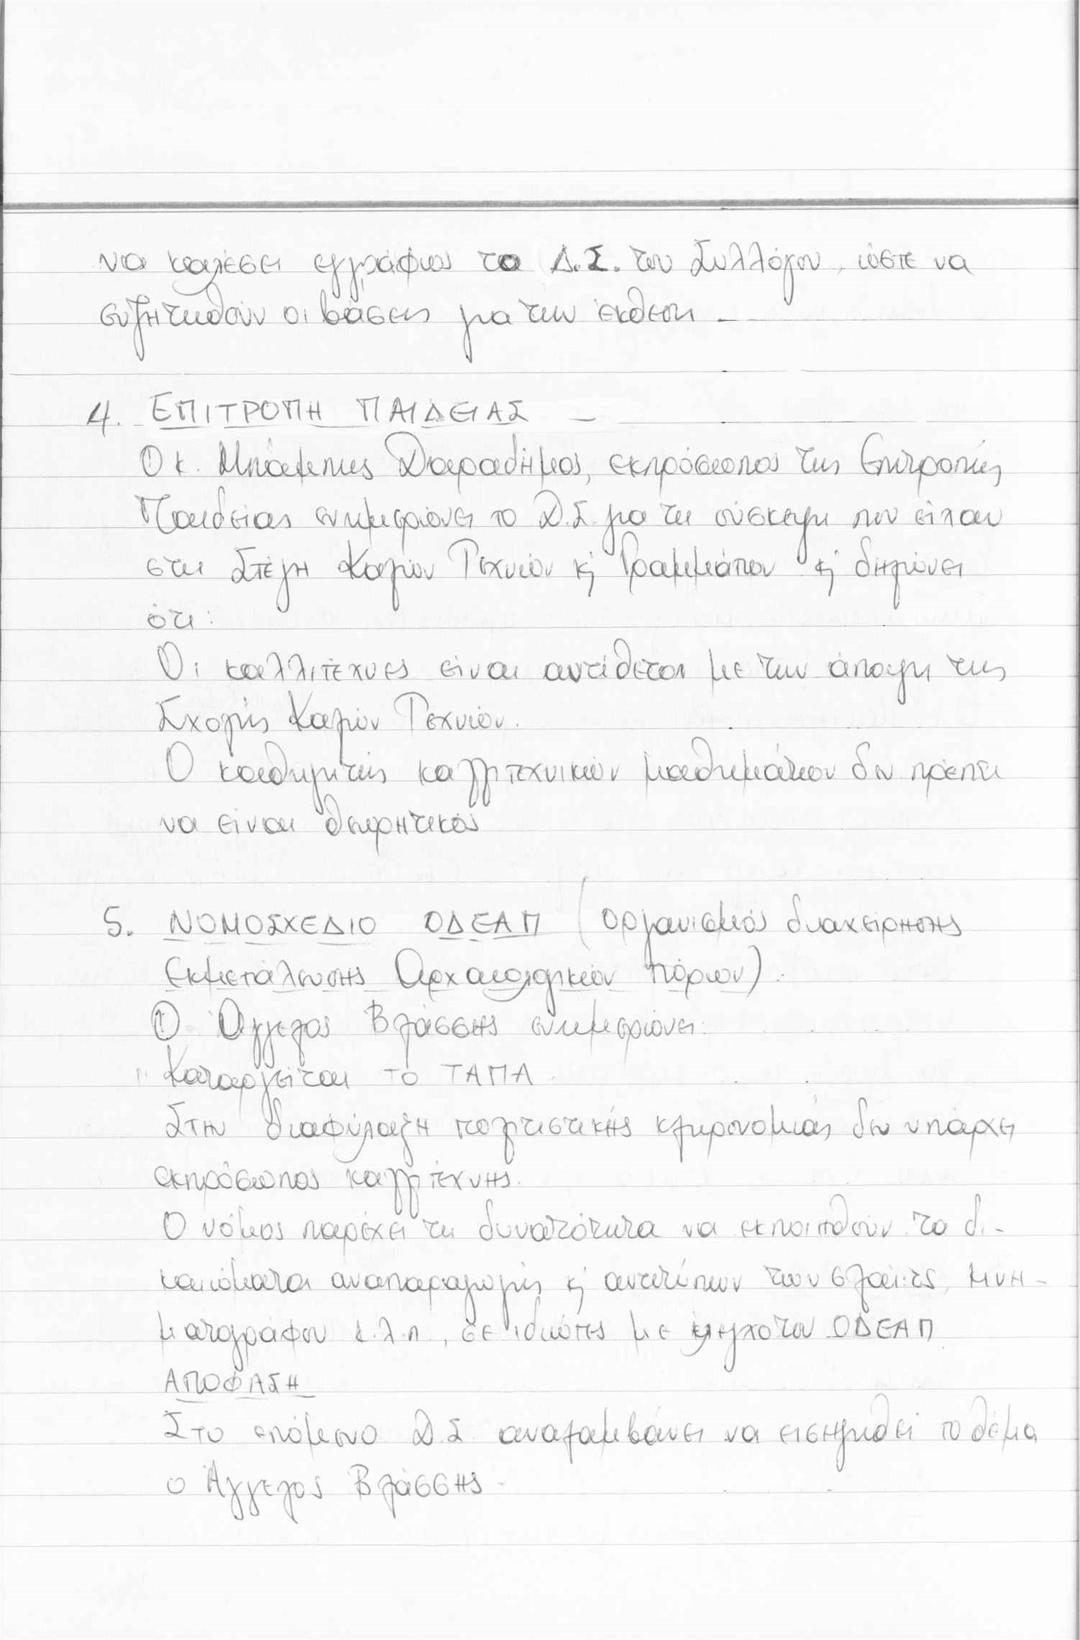 να καλέσει εγγράφως το Δ.Σ. του Συλλόγου, ώστε να
συζητηθούν οι βάσεις για την έκθεση
4. ΕΠΙΤΡΟΠΗ ΠΑΙΔΕΙΑΣ
Ο κ. Μπάμπης Δαραδήμος, εκπρόσωπος της Επιτροπής
Παιδείας ενημερώνει το Δ.Σ. για τη σύσκεψη που είχαν
στη Στέγη Καλών Τεχνών κ' Γραμμάτων κ' δηλώνει
ότι:
Οι καλλιτέχνες είναι αντίθετοι με την άποψη της
Σχολής Καλών Τεχνών.
Ο καθηγητής καλλιτεχνικών μαθημάτων δεν πρέπει
να είναι θεωρητικός
5. ΝΟΜΟΣΧΕΔΙΟ ΟΔΕΑΠ (οργανισμός διαχείρησης
Εκμετάλευσης Αρχαιολογικών πόρων).
Ο Άγγελος Βλάσσης ενημερώνει:
Καταργείται το ΤΑΠΑ
Στην διαφύλαξη πολιτιστικής κληρονομιάς δεν υπάρχει
εκπρόσωπος καλλιτέχνης.
Ο νόμος παρέχει τη δυνατότητα να εκποιηθούν τα δι-
καιώματα αναπαραγωγής κ' αντιτύπων των σλάιτς, κινη-
ματογράφου κ.λ.π., σε ιδιώτες με έλεγχο του ΟΔΕΑΠ
ΑΠΟΦΑΣΗ
Στο επόμενο Δ.Σ αναλαμβάνει να εισηγηθεί το θέμα
ο Άγγελος Βλάσσης.